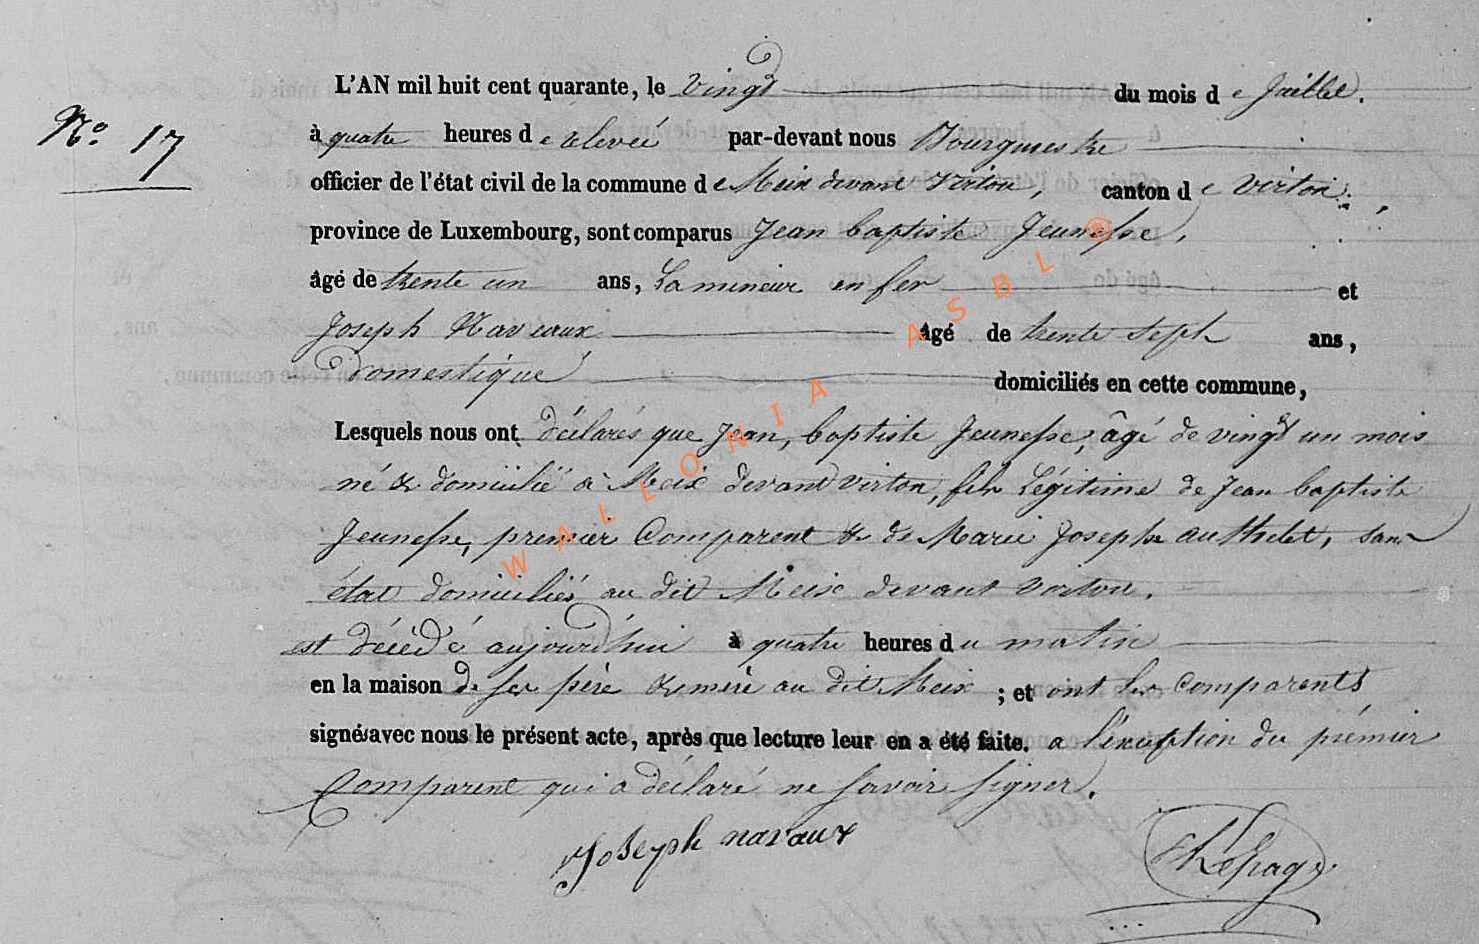 L'AN mil huit cent quarante, le vingt du mois de Juillet.
N° 17
à quatre heures de relevée par-devant nous Bourgmestre
officier de l'état civil de la commune de Meix devant Virton, canton de Virton,
province de Luxembourg, sont comparus Jean baptiste Jeunesse,
âgé de trente un ans, Lamineur en fer et
Joseph Navaux âgé de trente sept ans,
Domestique domiciliés en cette commune,
Lesquels nous ont déclarés que Jean, baptiste Jeunesse, âgé de vingt un mois
né & domicilié à Meix devant virton, fils Légitime de Jean baptiste
Jeunesse, premier Comparent & de Marie Joseph authelet, sans
état domiciliés au dit Meix devant virton.
est décédé aujourd'hui à quatre heures du matin
en la maison de ses père & mère au dit Meix ; et ont les Comparents
signés avec nous le présent acte, après que lecture leur en a été faite. a l'exception du prémier
Comparent qui a déclaré ne savoir signer.
Joseph navaux
Lepage
WALLONIA ASBL ®